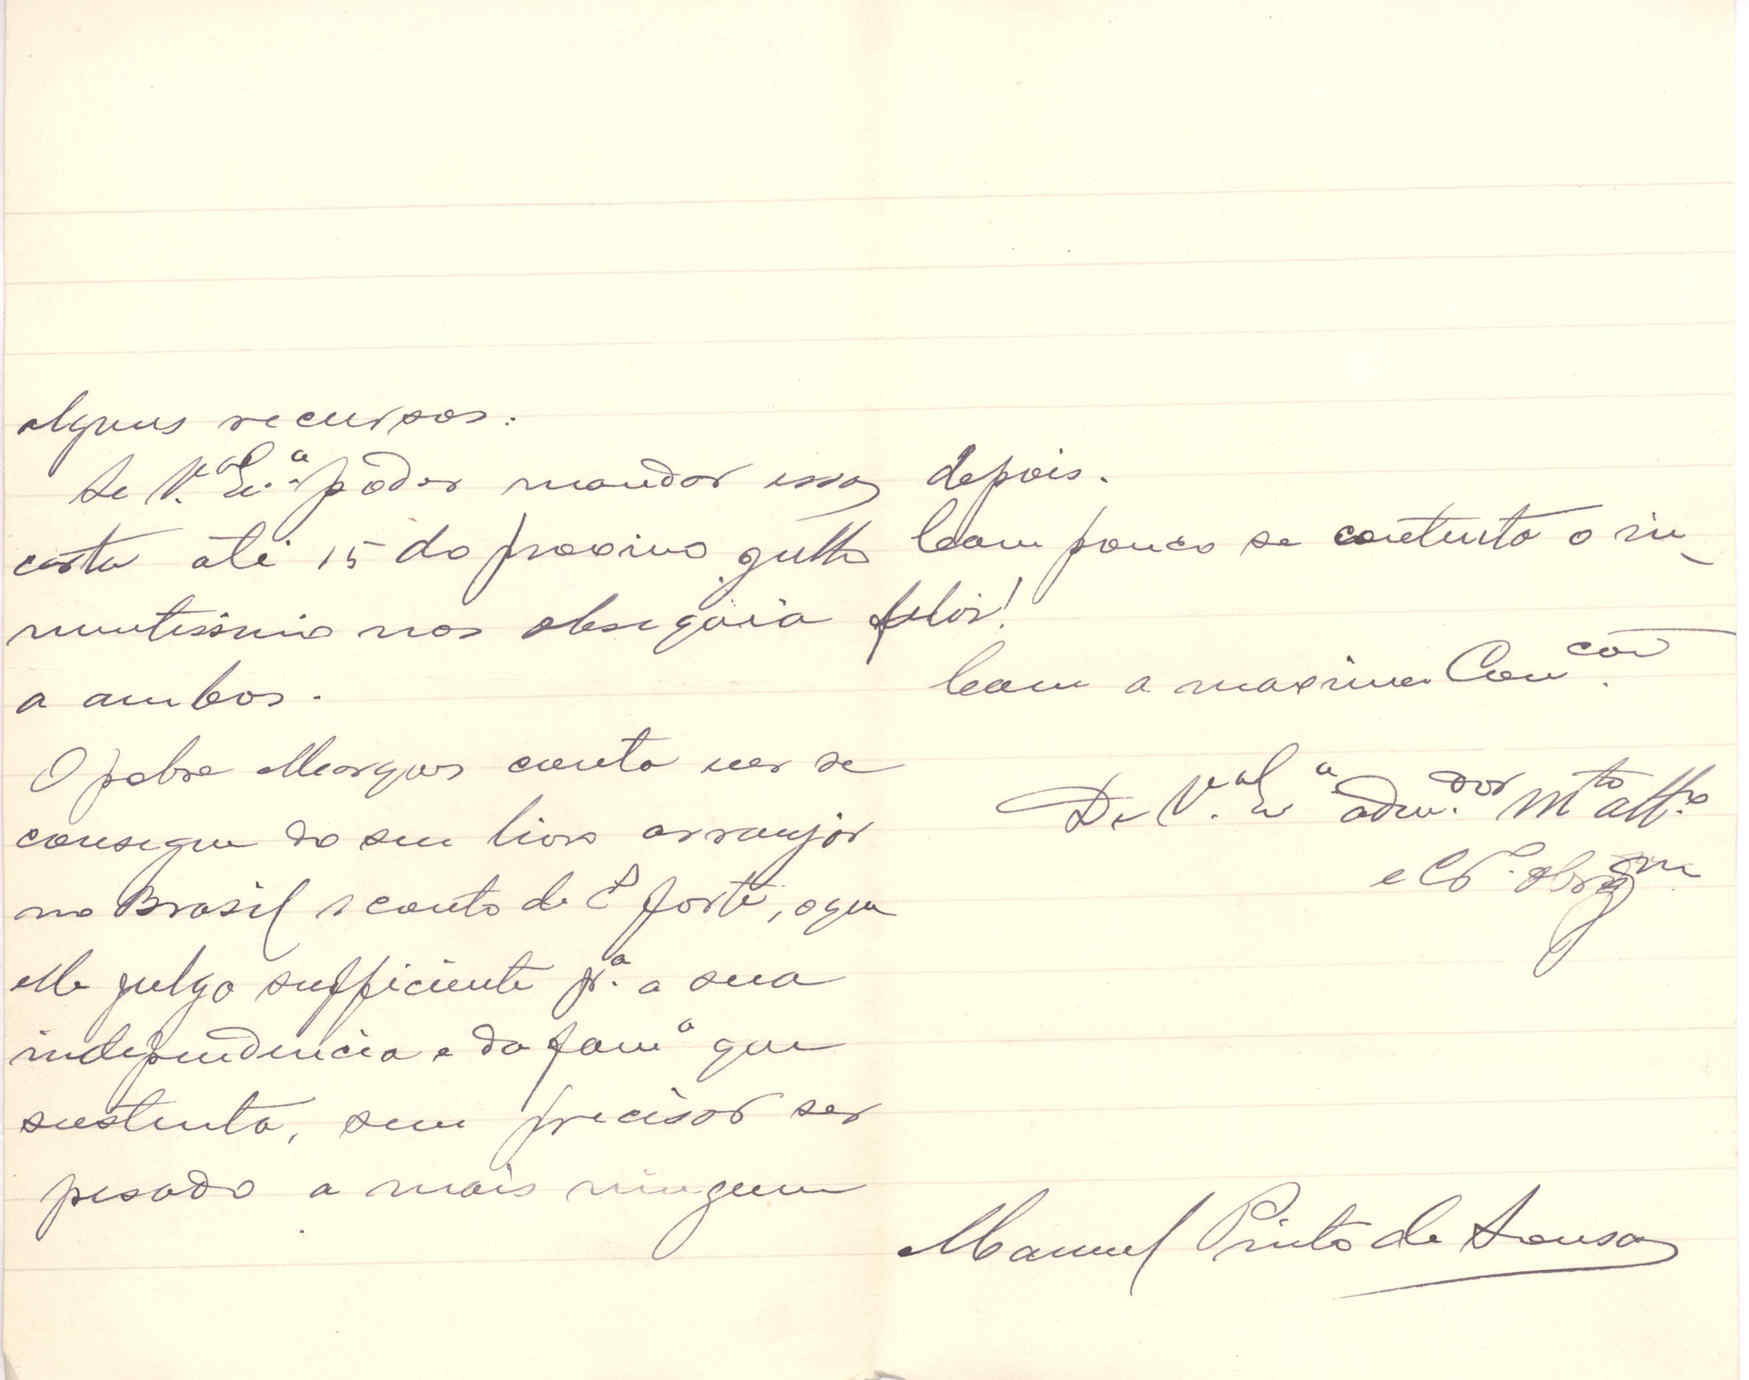 alguns recursos.
Se V.ª Ex.ª podér mandar essa
carta até 15 do proximo julho
muitissimo nos obsequia
a ambos.
O pobre Marques conta ver se
consegue do seu livro arranjár
no Brasil 1 conto de forte, o que
elle julga sufficiente pr.ª a sua
independencia e da famª que
sustenta, sem precisar ser
pesado a mais ninguem
depois.
Com pouco se contenta o in-
feliz!
Com a maxima Con.cão
De V.ª Exª adm.dor Mto atto
e Cº. obrgm
Manuel Pinto de Sousa